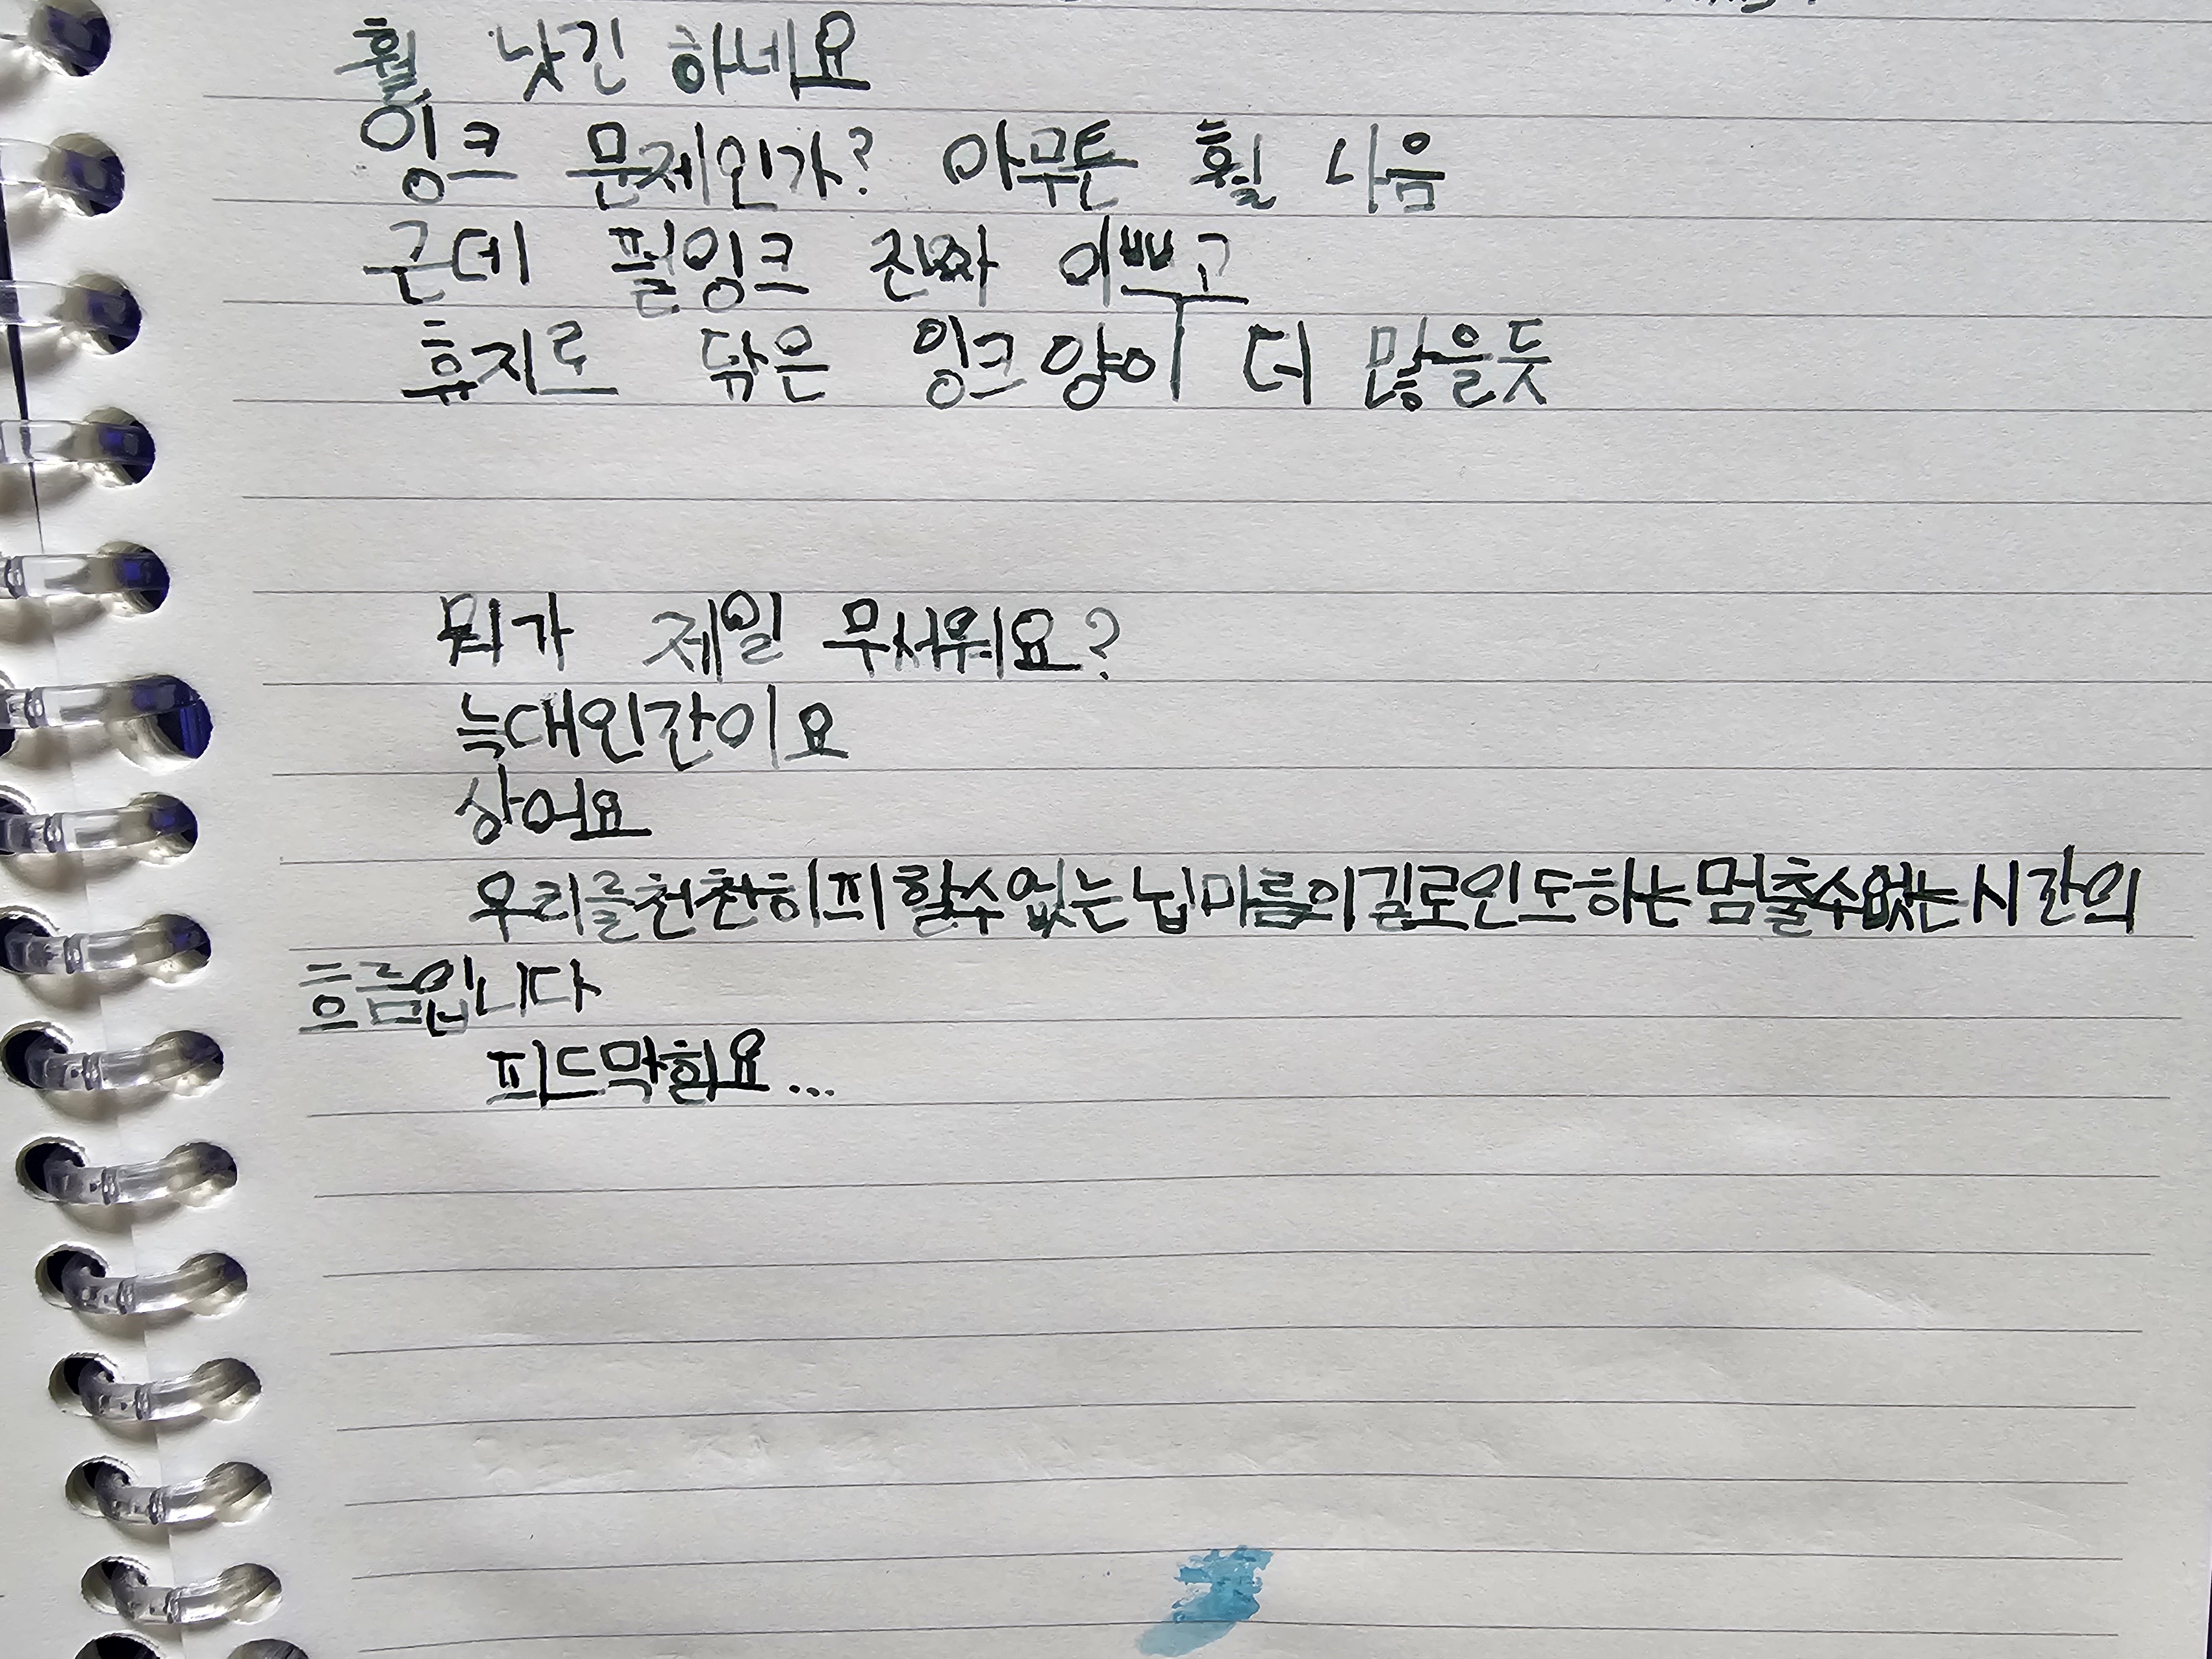 훨 낫긴 하네요
잉크 문제인가? 아무튼 훨 나음
근데 펄잉크 진짜 이쁘고
휴지로 닦은 잉크양이 더 많을듯
뭐가 제일 무서워요?
늑대인간이요
상어요
우리를천천히피할수없는닙마름의길로인도하는멈출수없는시간의
흐름입니다
피드막혀요...